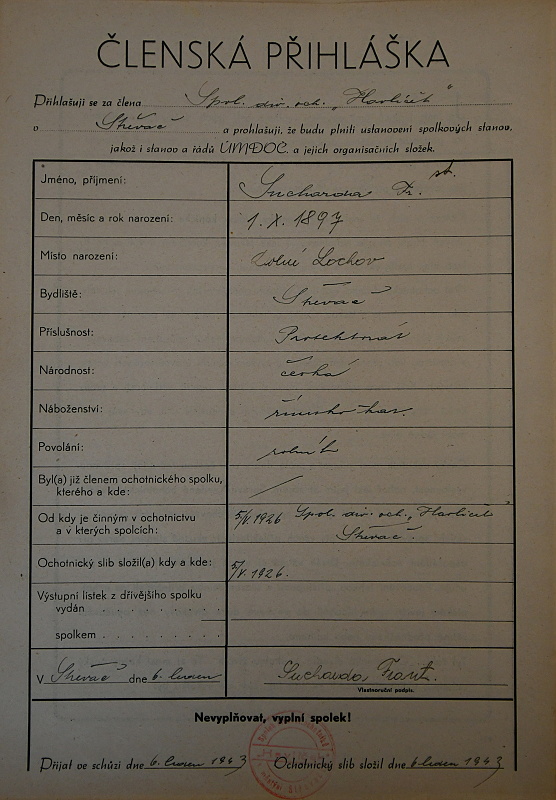 ČLENSKÁ PŘIHLÁŠKA
Přihlašuji se za člena Spol. div. och. „Havlíček“
o Střevač a prohlašuji, že budu plniti ustanovení spolkových stanov,
jakož i stanov a řádů ÚMDOC. a jejich organisačních složek.
Jméno, příjmení: Sucharda Fr. st.
Den, měsíc a rok narození: 1. X. 1897
Místo narození: Lochov
Bydliště: Střevač
Příslušnost: Protektorát
Národnost: česká
Náboženství: římsko-kat.
Povolání: rolník
Byl(a) již členem ochotnického spolku,
kterého a kde: /
Od kdy je činným v ochotnictvu 5/V. 1926 Spol. div. och. „Havlíček“
a v kterých spolcích: Střevač.
Ochotnický slib složil(a) kdy a kde: 5/V. 1926.
Výstupní lístek z dřívějšího spolku
vydán . . . . . . . . .
spolkem . . . . . . . .
V Střevač dne 6. leden Sucharda Frant.
Vlastnoruční podpis.
Nevyplňovat, vyplní spolek!
Přijat ve schůzi dne 6. leden 1943 Ochotnický slib složil dne 6 leden 1943